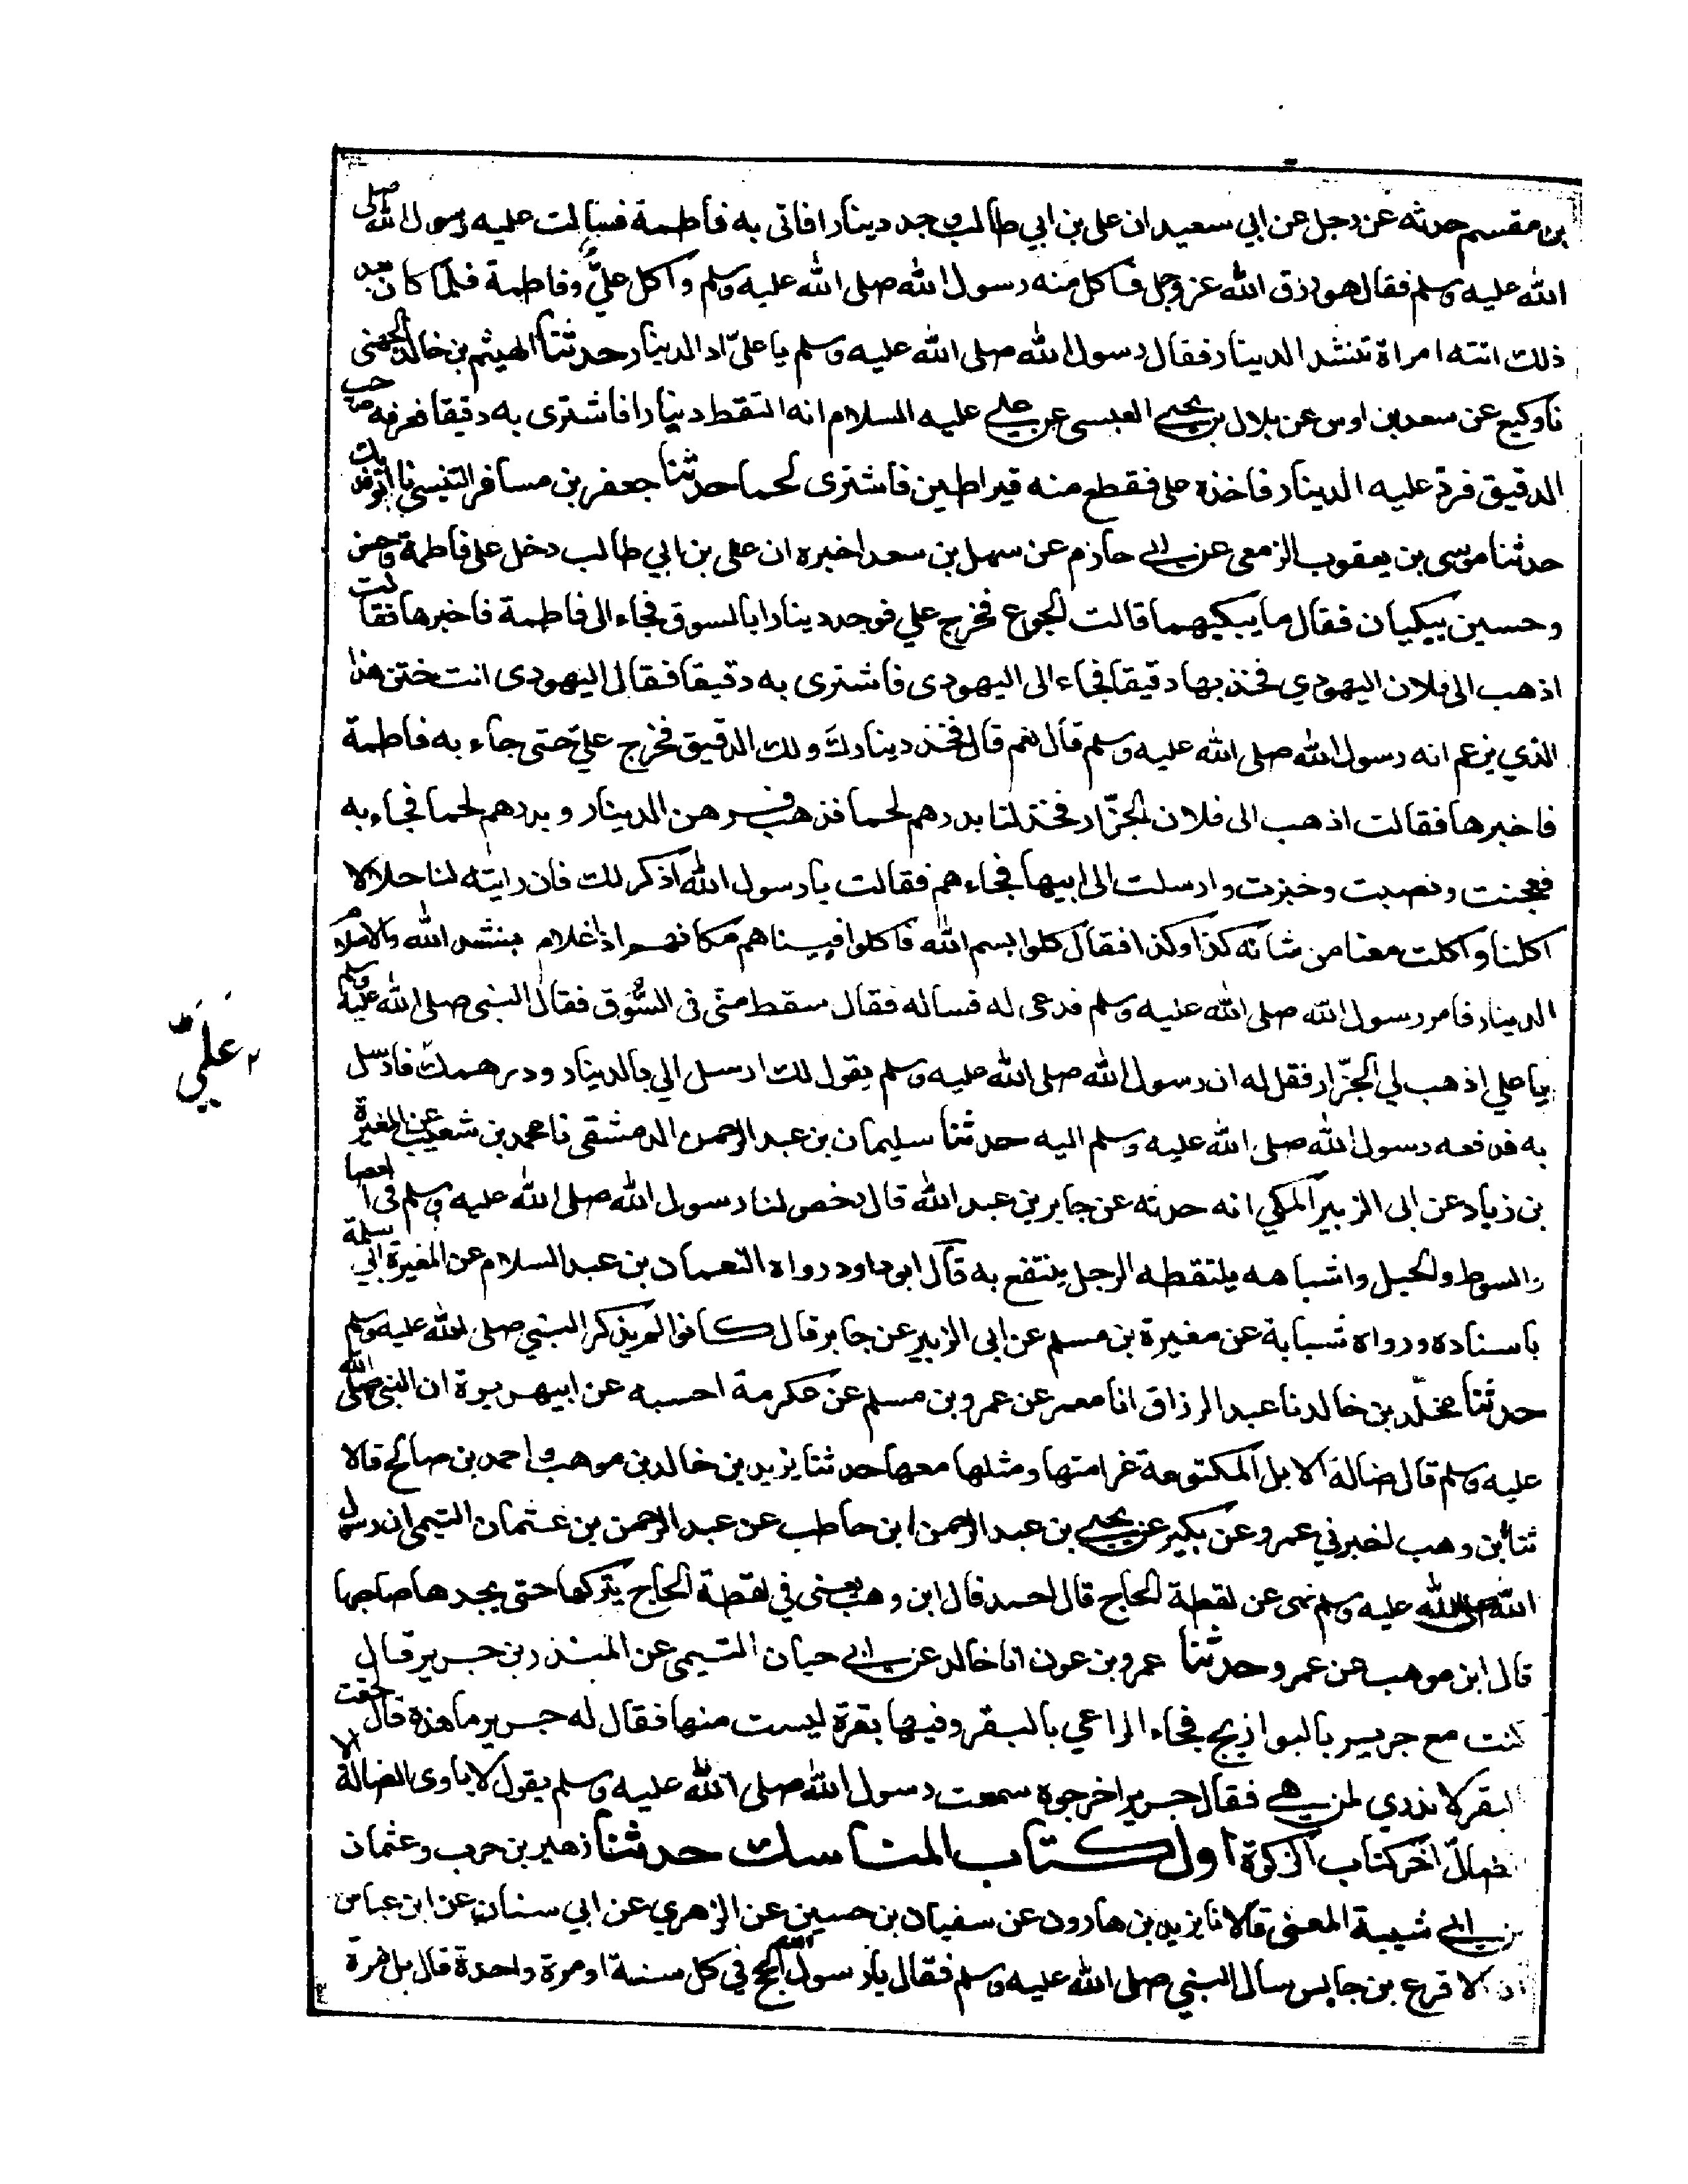 بن مقسم حدثه عن رجل عن ابي سعيد ان علي بن ابي طالب وجد دينارا فاتى به فاطمة فسالت عليه رسول الله صلى
الله عليه وسلم فقال هو رزق الله عز وجل فاكل منه رسول الله صلى الله عليه وسلم واكل عليٌّ وفاطمة فلما كان بعد
ذلك اتته امراة تنشد الدينار فقال رسول الله صلى الله عليه وسلم يا عليّ اد الدينار حدثنا الهيثم بن خالد الجهنى
نا وكيع عن سعد بن اوس عن بلال بن يحيى العبسى عن علي عليه السلام انه التقط دينارا فاشترى به دقيقا فعرفه صاحب
الدقيق فرد عليه الدينار فاخذه على فقطع منه قيراطين فاشترى لحما حدثنا جعفر بن مسافر التنيسي نا ابن ابي فديك
حدثنا موسى بن يعقوب الزمعى عن ابي حازم عن سهل بن سعد اخبره ان على بن ابي طالب دخل على فاطمة وحسن
وحسين يبكيان فقال ما يبكيهما قالت الجوع فخرج علي فوجد دينارا بالسوق فجاء الى فاطمة فاخبرها فقالت
اذهب الى فلان اليهودي فخذ بها دقيقا فجاء الى اليهودى فاشترى به دقيقا فقال اليهودى انت ختن هذا
الذي يزعم انه رسول الله صلى الله عليه وسلم قال نعم قال فخذ دينارك ولك الدقيق فخرج عليّ حتى جاء به فاطمة
فاخبرها فقالت اذهب الى فلان الجزّار فخذ لنا بدرهم لحما فذهب فرهن الدينار وبدرهم لحما فجاء به
فعجنت ونصبت وخبزت وارسلت الى ابيها فجاءهم فقالت يا رسول الله اذكر لك فان رايته لنا حلالا
اكلنا واكلت معنا من شانه كذا وكذا فقال كلوا بسم الله فاكلوا فبيناهم مكانهم اذا غلام ينشد الله والاسلام
الدينار فامر رسول الله صلى الله عليه وسلم فدعى له فساله فقال سقط منّى فى السُّوق فقال النبى صلى الله عليه وسلم
يا علي اذهب لي الجزّار فقل له ان رسول الله صلى الله عليه وسلم يقول لك ارسل الي بالدينار ودرهمك فارسل
به فدفعه رسول الله صلى الله عليه وسلم اليه حدثنا سليمان بن عبد الرحمن الدمشقى نا محمد بن شعيب عن المغيرة
بن زياد عن ابى الزبير المكي انه حدثه عن جابر بن عبد الله قال رخص لنا رسول الله صلى الله عليه وسلم فى العصا
والسوط والحبل واشباهه يلتقطه الرجل ينتفع به قال ابو داود رواه النعمان بن عبد السلام عن المغيرة ابي سلمة
باسناده ورواه شبابة عن مغيرة بن مسلم عن ابى الزبير عن جابر قال كانوا لم يذكر النبي صلى الله عليه وسلم
حدثنا مخلّد بن خالد نا عبد الرزاق انا معمر عن عمرو بن مسلم عن عكرمة احسبه عن ابيهريرة ان النبى صلى الله
عليه وسلم قال ضالة الابل المكتومة غرامتها ومثلها معها حدثنا يزيد بن خالد بن موهب و احمد بن صالح قالا
ثنا ابن وهب اخبرني عمرو عن بكير عن يحيى بن عبد الرحمن ابن حاطب عن عبد الرحمن بن عثمان التيمى ان رسول
الله صلى الله عليه وسلم نهى عن لقطة الحاج قال احمد قال ابن وهب يعنى في لقطة الحاج يتركها حتى يجدها صاحبها
قال ابن موهب عن عمرو حدثنا عمرو بن عون انا خالد عن ابي حيان التيمى عن المنذر بن جرير قال
كنت مع جرير بالبوازيج فجاء الراعي بالبقر وفيها بقرة ليست منها فقال له جرير ما هذه قال لحقت
بالبقر لا ندري لمن هي فقال جرير اخرجوه سمعت رسول الله صلى الله عليه وسلم يقول لا ياوى الضالة الا
ضالّ اخر كتاب الزكوة اول كتاب المناسك حدثنا زهير بن حرب وعثمان
بن ابي شيبة المعنى قالا نا يزيد بن هارون عن سفيان بن حسين عن الزهري عن ابي سنان عن ابن عباس
ان الاقرع بن حابس سال النبي صلى الله عليه وسلم فقال يا رسول الله الحج في كل سنة او مرة واحدة قال بل مرة
٢ عَلَيَّ